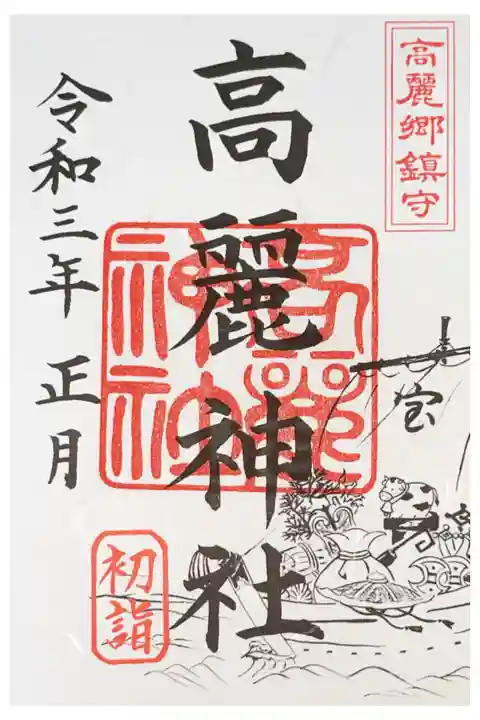 高麗郷鎮守
高麗神社
令和三年 正月
初詣
宝